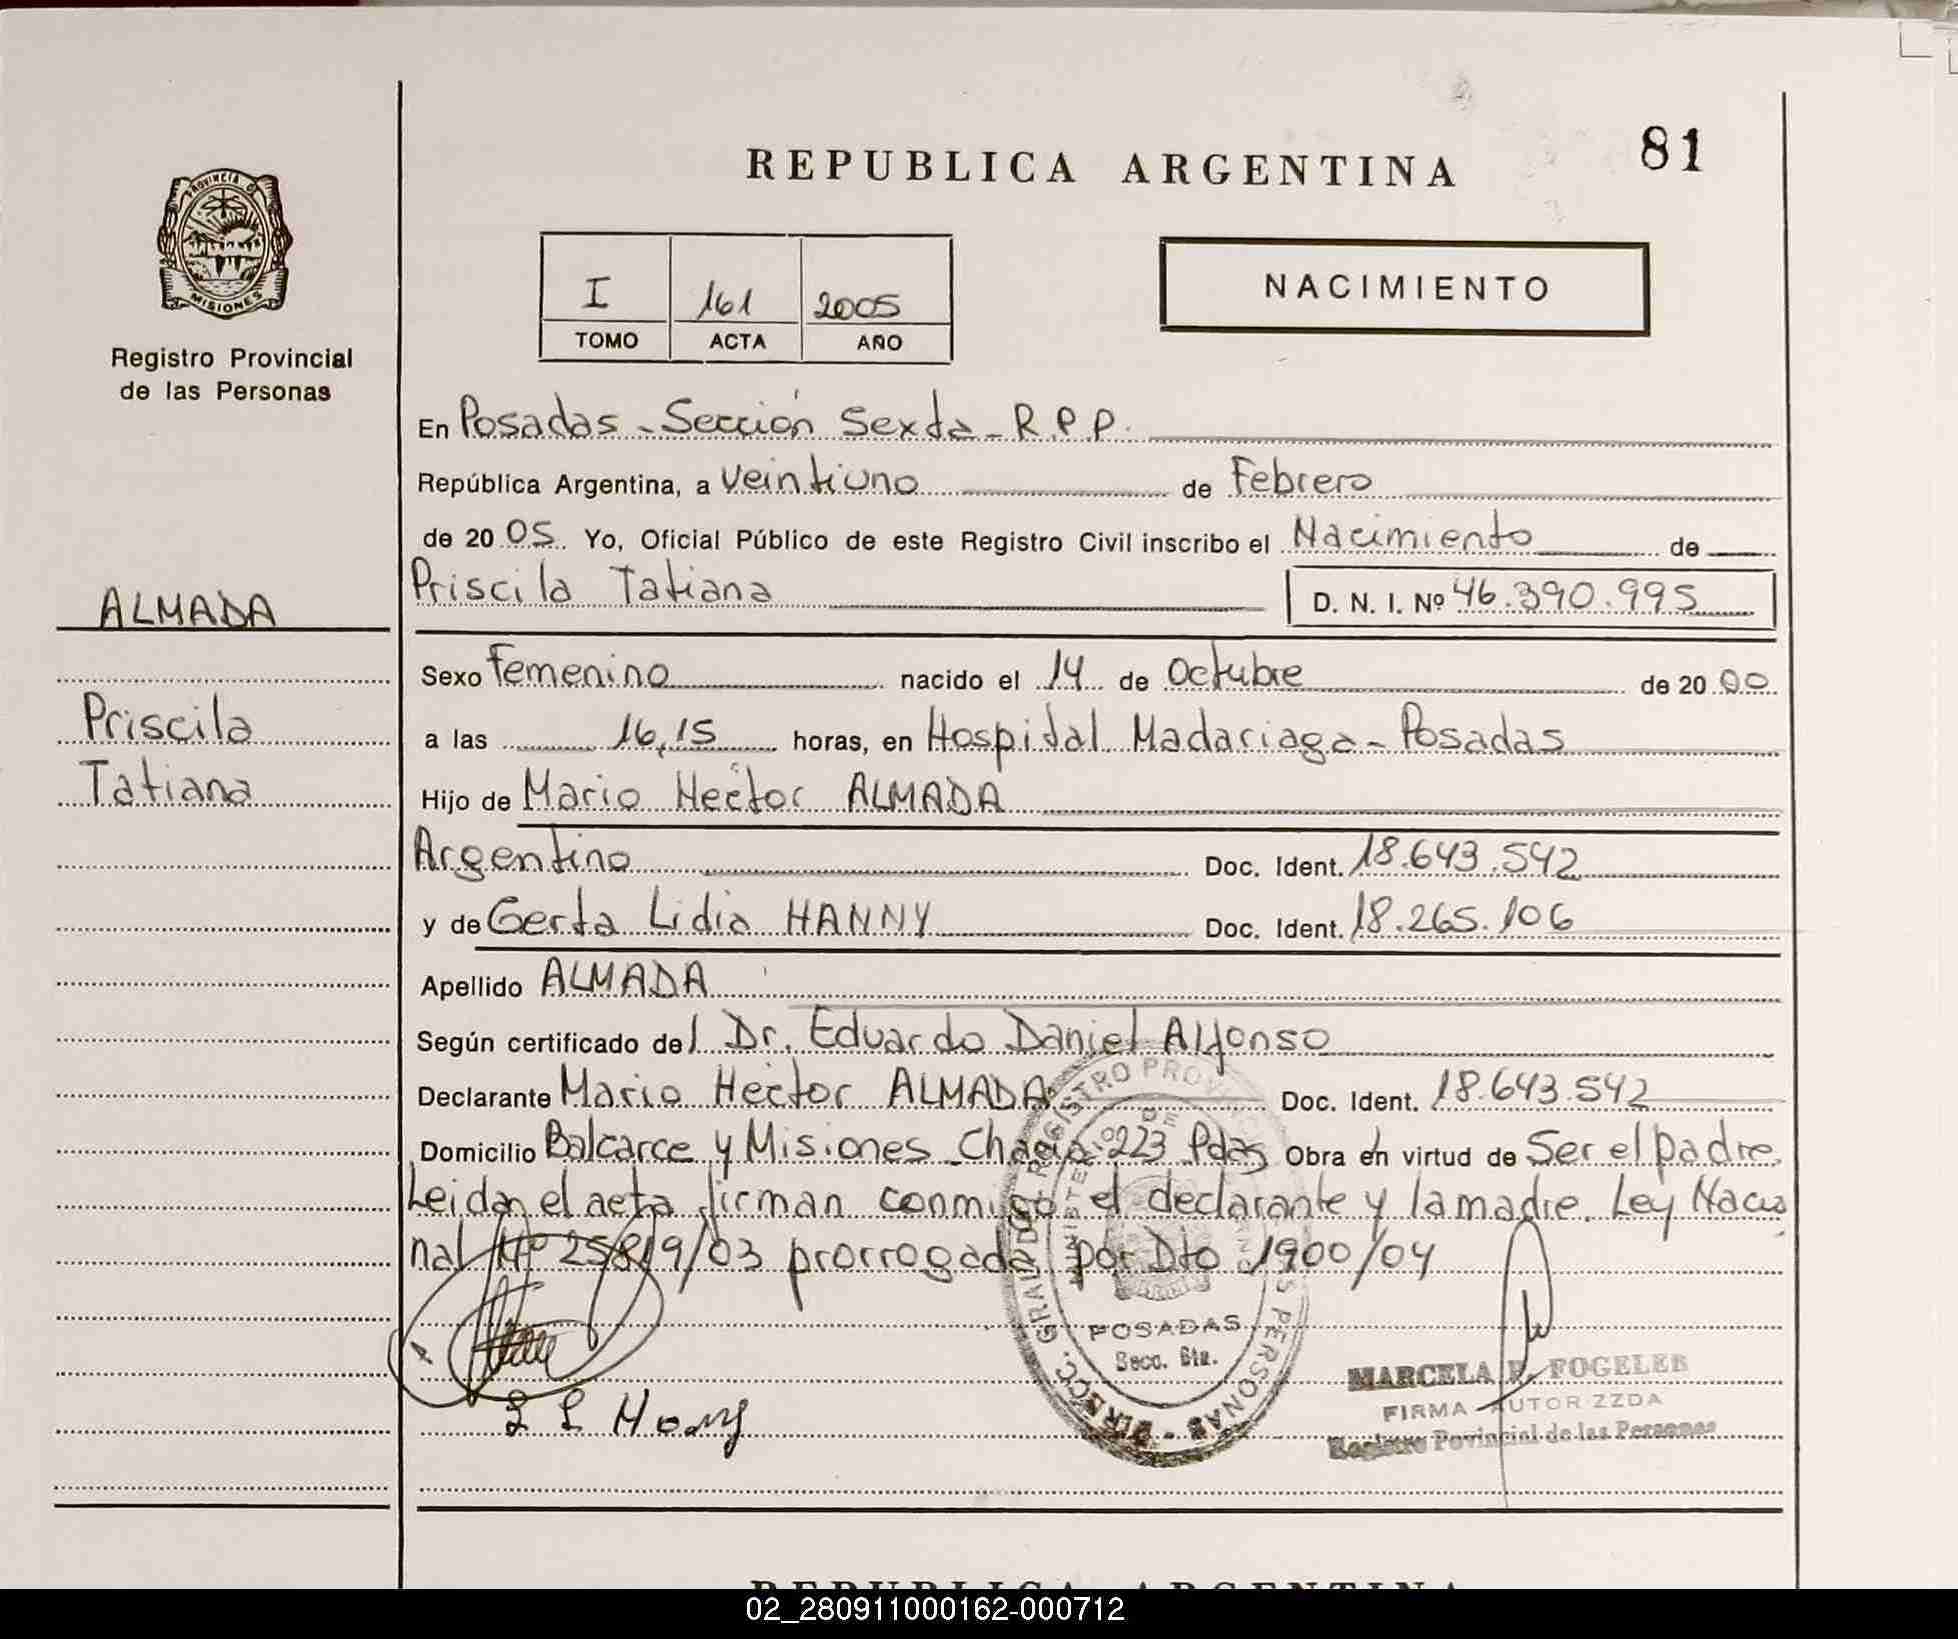 81
REPUBLICA ARGENTINA
PROVINCIA DE
MISIONES
Registro Provincial
de las Personas
I 161 2005
TOMO ACTA AÑO
NACIMIENTO
En Posadas - Sección Sexta - R.P.P.
República Argentina, a veintiuno de Febrero
de 2005. Yo, Oficial Público de este Registro Civil inscribo el Nacimiento de
Priscila Tatiana D. N. I. Nº 46.390.995
ALMADA
Priscila
Tatiana
Sexo Femenino nacido el 14 de Octubre de 2000
a las 16,15 horas, en Hospital Madariaga - Posadas
Hijo de Mario Héctor ALMADA
Argentino Doc. Ident. 18.643.542
y de Gerta Lidia HANNY Doc. Ident. 18.265.106
Apellido ALMADA
Según certificado del Dr. Eduardo Daniel Alfonso
Declarante Mario Héctor ALMADA Doc. Ident. 18.643.542
Domicilio Balcarce y Misiones Chacra 223 Pdas Obra en virtud de Ser el padre.
Leida el acta firman conmigo el declarante y la madre. Ley Nacio
nal Nº 25819/03 prorrogada por Dto 1900/04
DIRECC. GRAL. DEL REGISTRO PROVINCIAL DE LAS PERSONAS
MINISTERIO DE
POSADAS
Secc. 6ta.
MARCELA F. FOGELER
FIRMA AUTORIZZDA
Registro Povincial de las Personas
REPUBLICA ARGENTINA
02_280911000162-000712